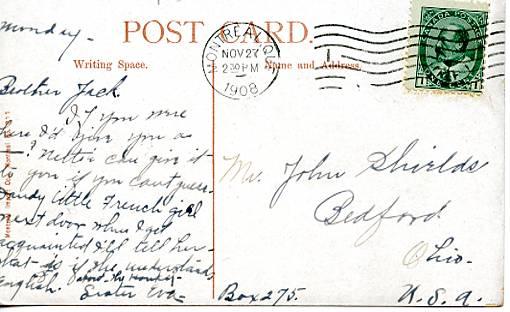 Monday -
POST CARD.
Writing Space.
Name and Address.
MONTREAL, QUE
NOV 27
2 30 PM
1908
CANADA POSTAGE
Brother Jack.
If you were
here I'd give you a
- ? Nettie can give it
to you if you can't guess.
Dandy little French girl
next door when I get
acquainted I'll tell her -
that - is if she understands
English.
Sister Eva -
Mr. John Shields
Bedford
Ohio.
Box 275.
U. S. A.